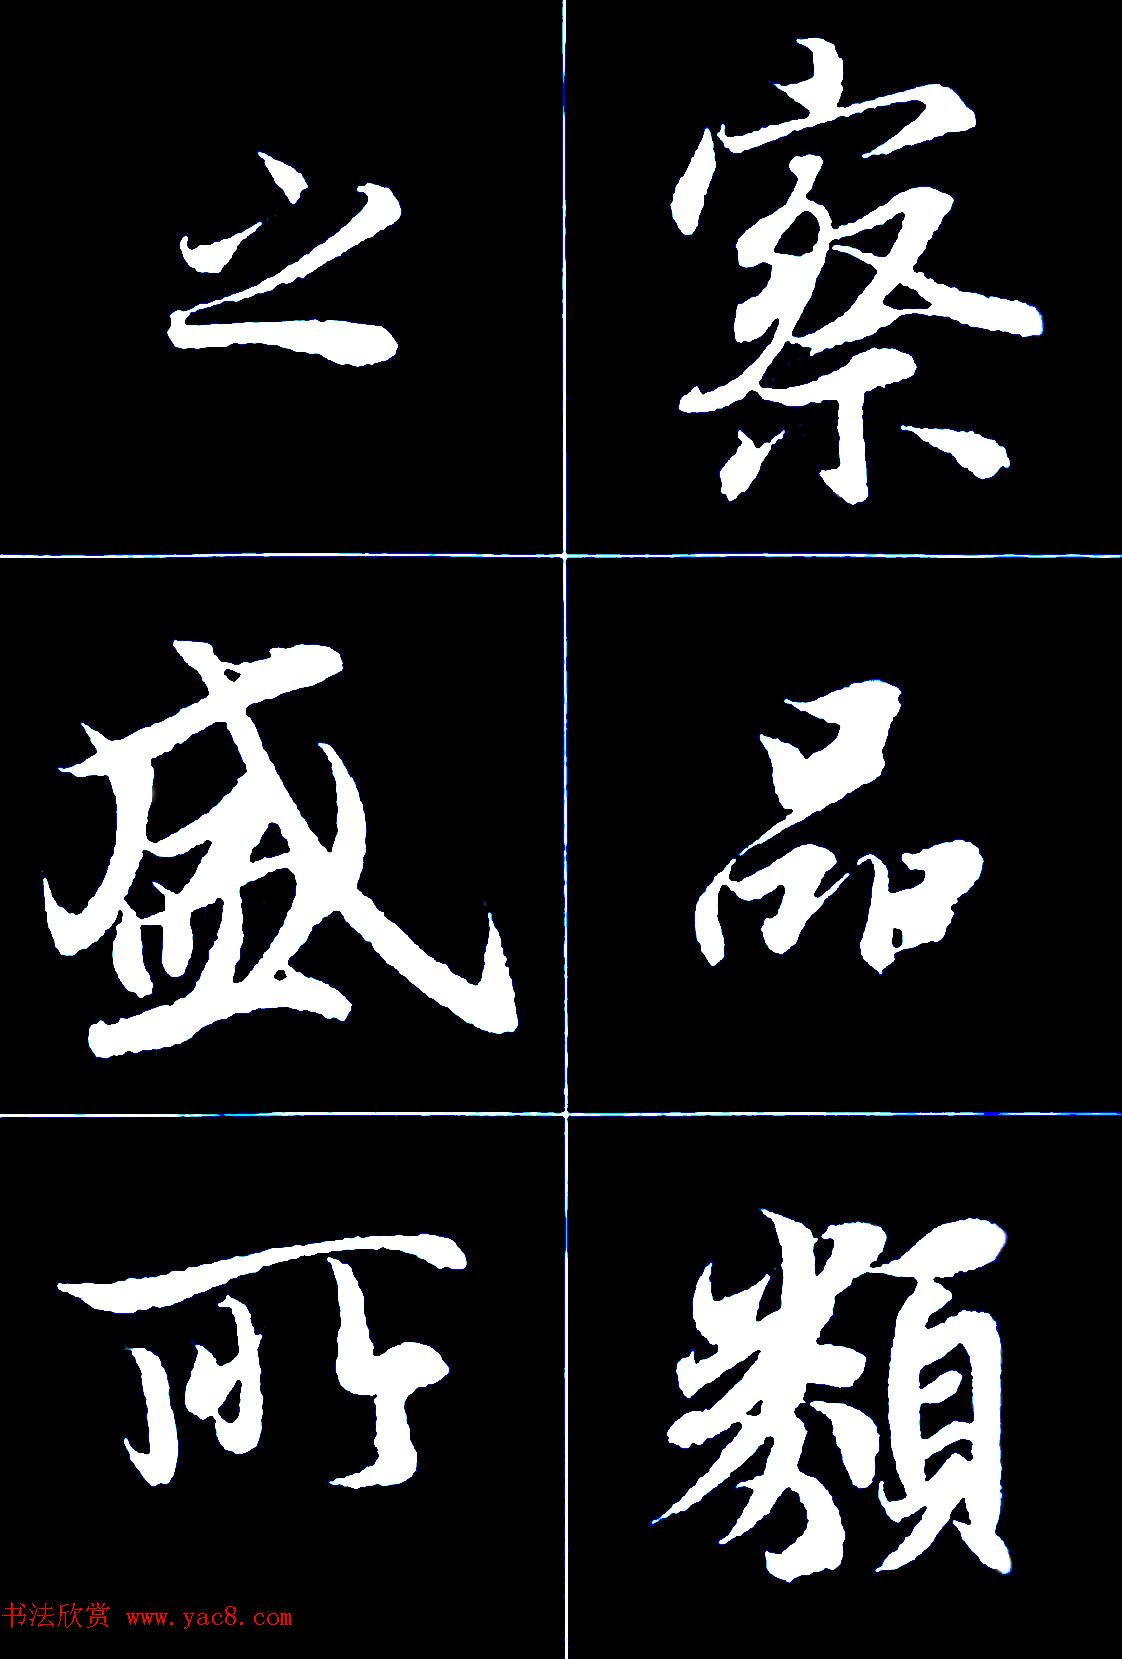 察品類
之盛所
书法欣赏 www.yac8.com